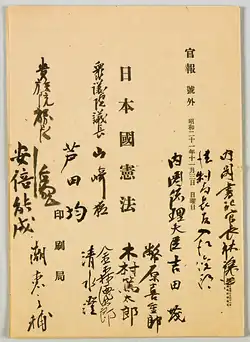 官報 號外 昭和二十一年十一月三日 日曜日
內閣書記官長林讓治
法制局長官入江俊郎
內閣總理大臣吉田茂
幣原喜重郎
木村篤太郎
金森德次郎
清水澄
日本國憲法
印刷局
衆議院議長山崎猛
芦田均
貴族院
安倍能成
潮惠之輔